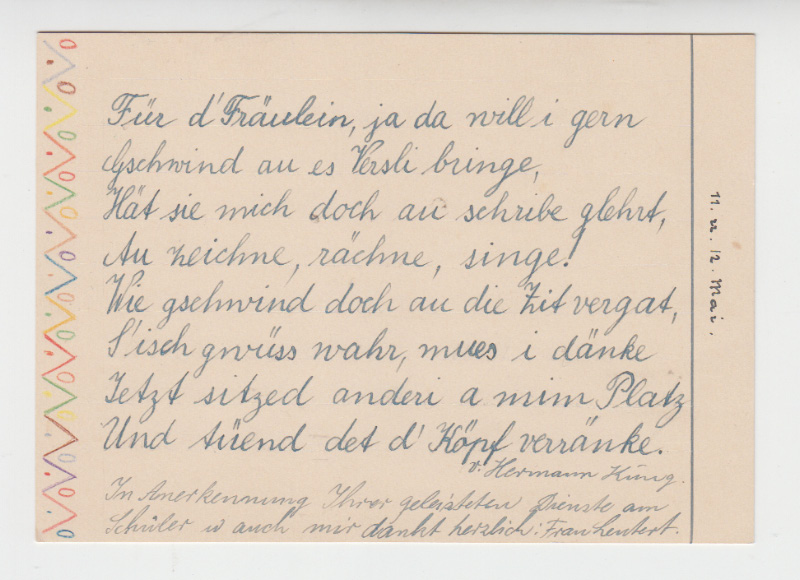 Für d'Fräulein, ja da will i gern
Gschwind au es Versli bringe,
Hät sie mich doch au schribe glehrt,
Au zeichne, rächne, singe!
Wie gschwind doch au die Zit vergat,
S'isch gwüss wahr, mues i dänke
Jetzt sitzed anderi a mim Platz
Und tüend det d'Köpf verränke.
v. Hermann Küng.
In Anerkennung Ihrer geleisteten Dienste am
Schüler u auch mir dankt herzlich: Frau Leutert.
11. u. 12. Mai.